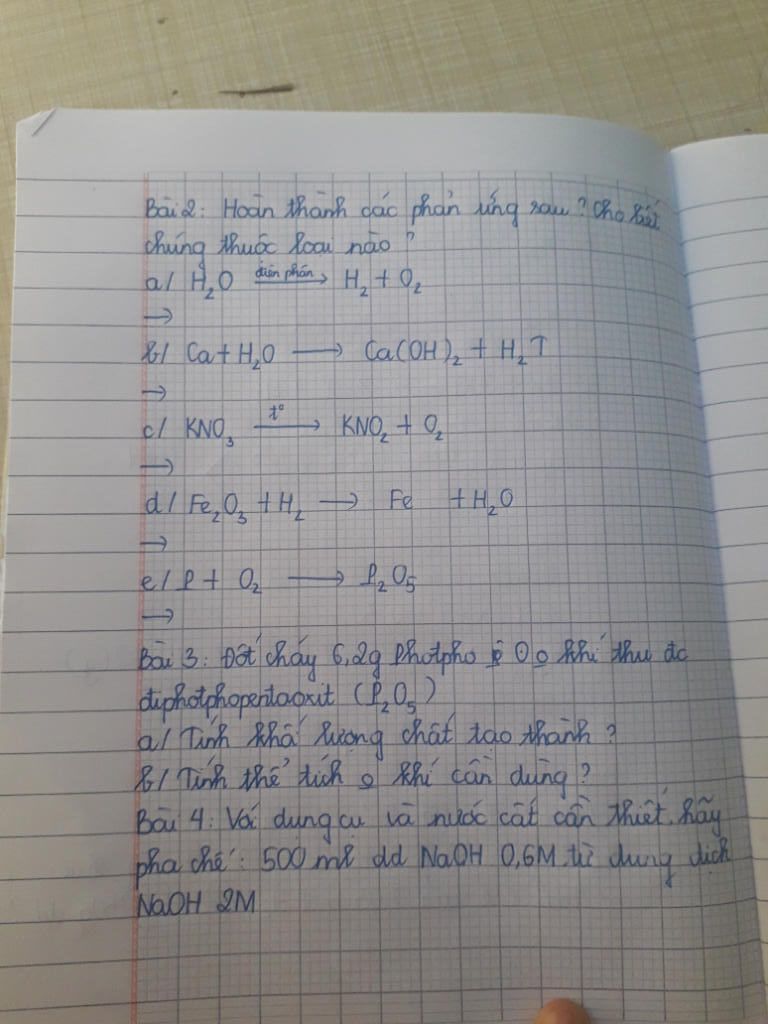 Bài 2: Hoàn thành các phản ứng sau? Cho biết
chúng thuộc loại nào?
a/ H₂O điện phân → H₂ + O₂
→
b/ Ca + H₂O → Ca(OH)₂ + H₂↑
→
c/ KNO₃ t° → KNO₂ + O₂
→
d/ Fe₂O₃ + H₂ → Fe + H₂O
→
e/ P + O₂ → P₂O₅
→
Bài 3: Đốt cháy 6,2g Photpho O₂ khí thu đc
điphotphopentaoxit (P₂O₅)
a/ Tính khối lượng chất tạo thành?
b/ Tính thể tích khí cần dùng?
Bài 4: Với dụng cụ và nước cất cần thiết, hãy
pha chế: 500 ml dd NaOH 0,6M từ dung dịch
NaOH 2M